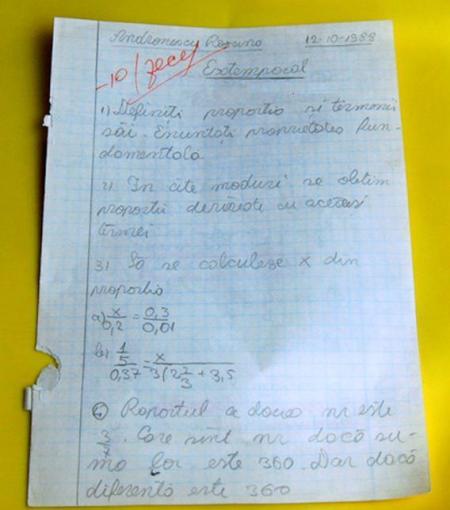 Andronescu Roxana 12-10-1988
10 (zece)
Extemporal
1) Definiti proportia si termenii
săi. Enuntati proprietatea fun-
damentala
2) In cite moduri se obtin
proportii derivate cu aceiasi
termei
3) Sa se calculeze x din
proportia
a) x/0,2 = 0,3/0,01
b) 1/5 / 0,37 = x / 3(2 2/3 + 3,5
4) Raportul a doua nr este
3/7. Care sint nr dacă su-
ma lor este 360. Dar dacă
diferenta este 360